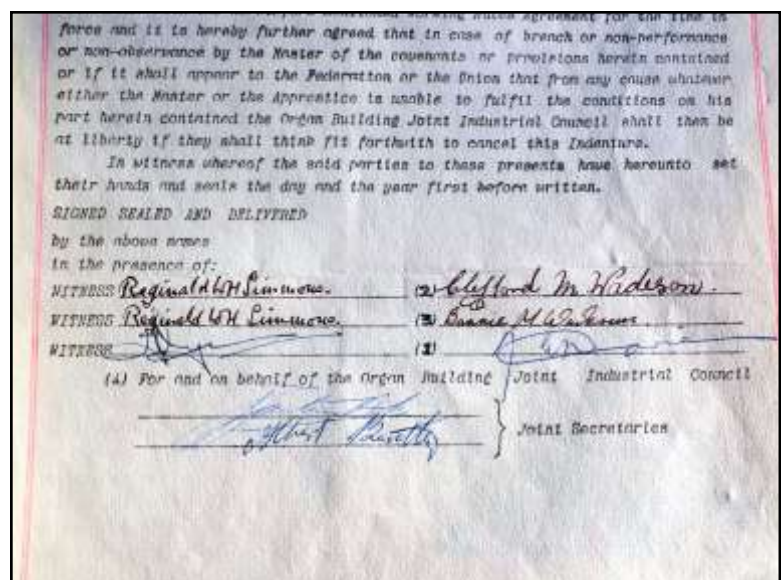 Working Rules Agreement for the time in
force and it is hereby further agreed that in case of breach or non-performance
or non-observance by the Master of the covenants or provisions herein contained
or if it shall appear to the Federation or the Union that from any cause whatever
either the Master or the Apprentice is unable to fulfil the conditions on his
part herein contained the Organ Building Joint Industrial Council shall then be
at liberty if they shall think fit forthwith to cancel this Indenture.
In witness whereof the said parties to these presents have hereunto set
their hands and seals the day and the year first before written.
SIGNED SEALED AND DELIVERED
by the above names
in the presence of:
WITNESS Reginald WH Simmons. (2) Clifford M
WITNESS Reginald WH Simmons. (3) M
WITNESS (1)
(4) For and on behalf of the Organ Building Joint Industrial Council
Albert
Joint Secretaries